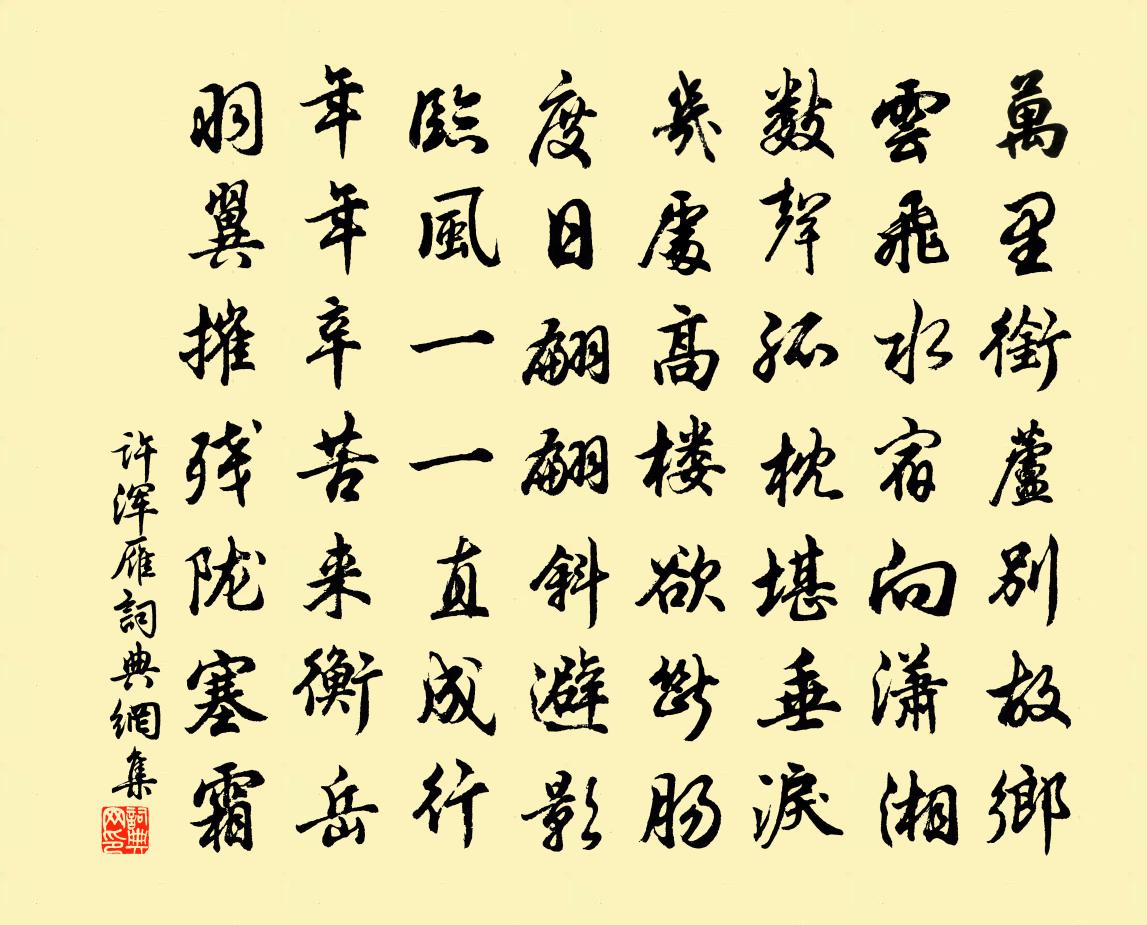 萬里銜蘆別故鄉
雲飛水宿向瀟湘
數聲孤枕堪垂淚
幾處高楼欲斷腸
度日翩翩斜避影
臨風一一直成行
年年辛苦来衡岳
羽翼摧残陇塞霜
许浑雁詞典網集
詞典网印